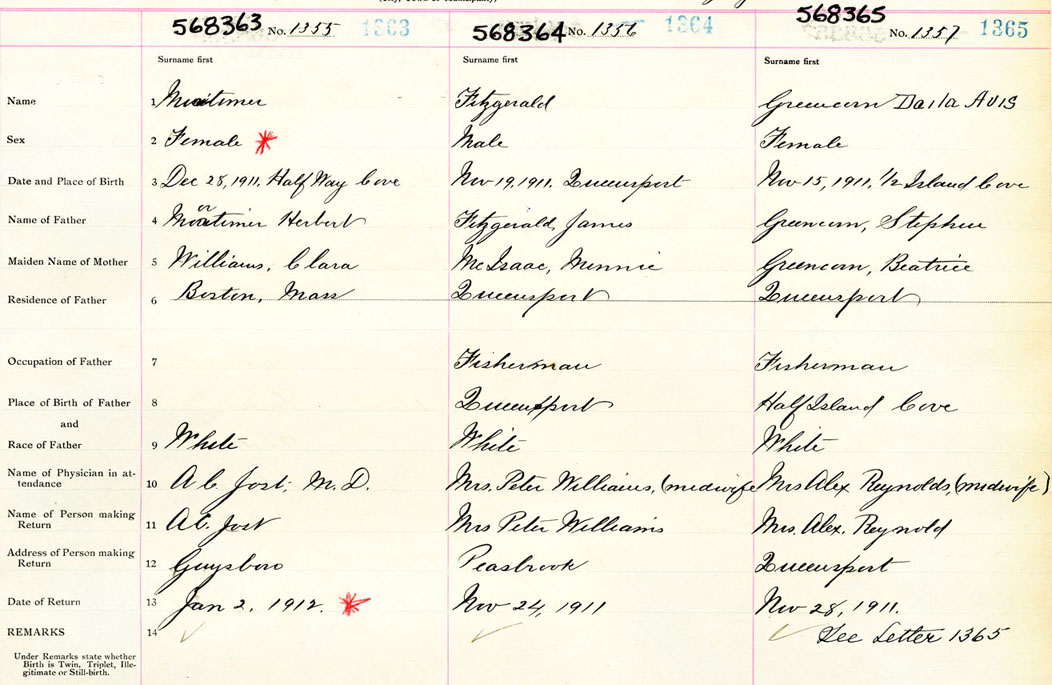 568363 No. 1355 1363 568364 No. 1356 1364 568365 No. 1357 1365
Surname first Surname first Surname first
Name 1 Mortimer Fitzgerald Greencorn Daila Avis
Sex 2 Female * Male Female
Date and Place of Birth 3 Dec 28, 1911. Half Way Cove Nov 19, 1911. Queensport Nov 15, 1911. 1/2 Island Cove
or
Name of Father 4 Mortimer Herbert Fitzgerald, James Greencorn, Stephen
Maiden Name of Mother 5 Williams, Clara McIsaac, Minnie Greencorn, Beatrice
Residence of Father 6 Boston, Mass Queensport Queensport
Occupation of Father 7 Fisherman Fisherman
Place of Birth of Father 8 Queensport Half Island Cove
and
Race of Father 9 White White White
Name of Physician in at-
tendance 10 A C Jost, M.D. Mrs. Peter Williams, (midwife Mrs Alex Reynolds, (midwife)
Name of Person making
Return 11 A.C. Jost Mrs Peter Williams Mrs. Alex. Reynold
Address of Person making
Return 12 Guysboro Peasbrook Queensport
Date of Return 13 Jan 2, 1912. * Nov 24, 1911 Nov 28, 1911.
REMARKS 14 ✓ ✓ ✓ See Letter 1365
Under Remarks state whether
Birth is Twin, Triplet, Ille-
gitimate or Still-birth.